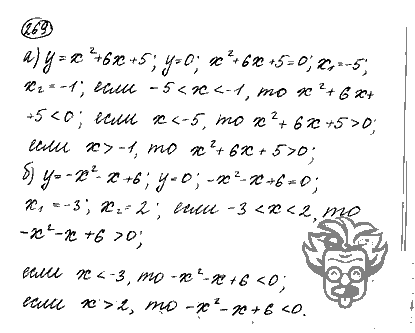 269
а) y = x² + 6x + 5; y = 0; x² + 6x + 5 = 0; x₁ = -5;
x₂ = -1; если -5 < x < -1, то x² + 6x +
+5 < 0; если x < -5, то x² + 6x + 5 > 0;
если x > -1, то x² + 6x + 5 > 0;
б) y = -x² - x + 6; y = 0; -x² - x + 6 = 0;
x₁ = -3; x₂ = 2; если -3 < x < 2, то
-x² - x + 6 > 0;
если x < -3, то -x² - x + 6 < 0;
если x > 2, то -x² - x + 6 < 0.